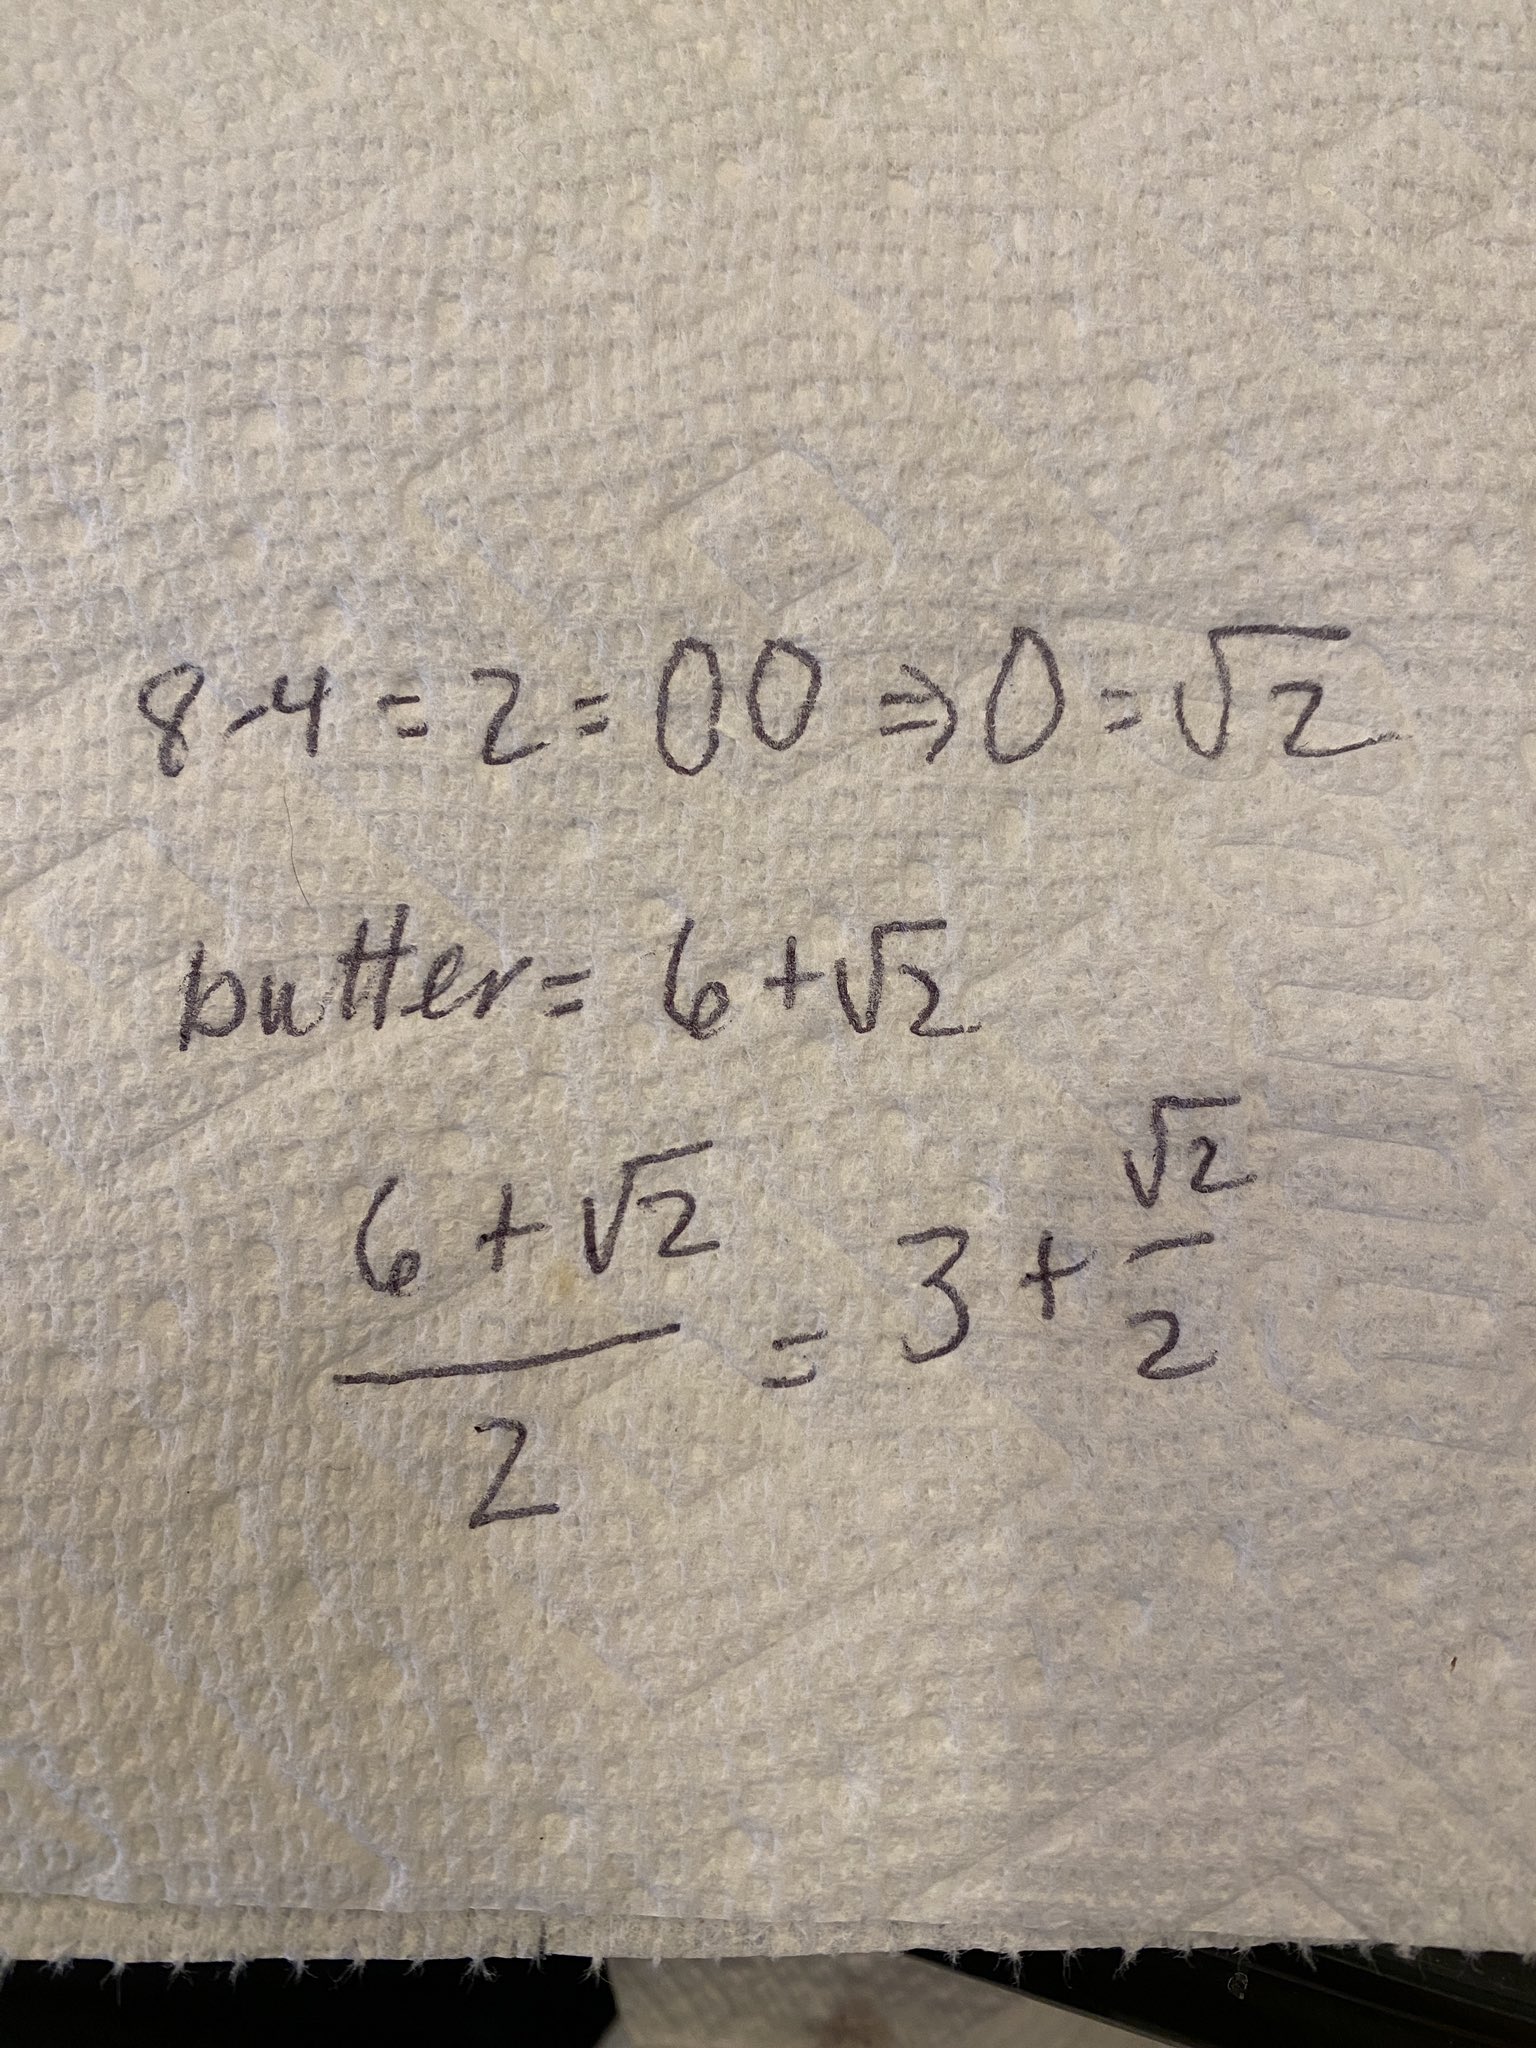 8-4 = 2 = 00 ⇒ 0 = √2
butter = 6 + √2
(6 + √2)/2 = 3 + √2/2